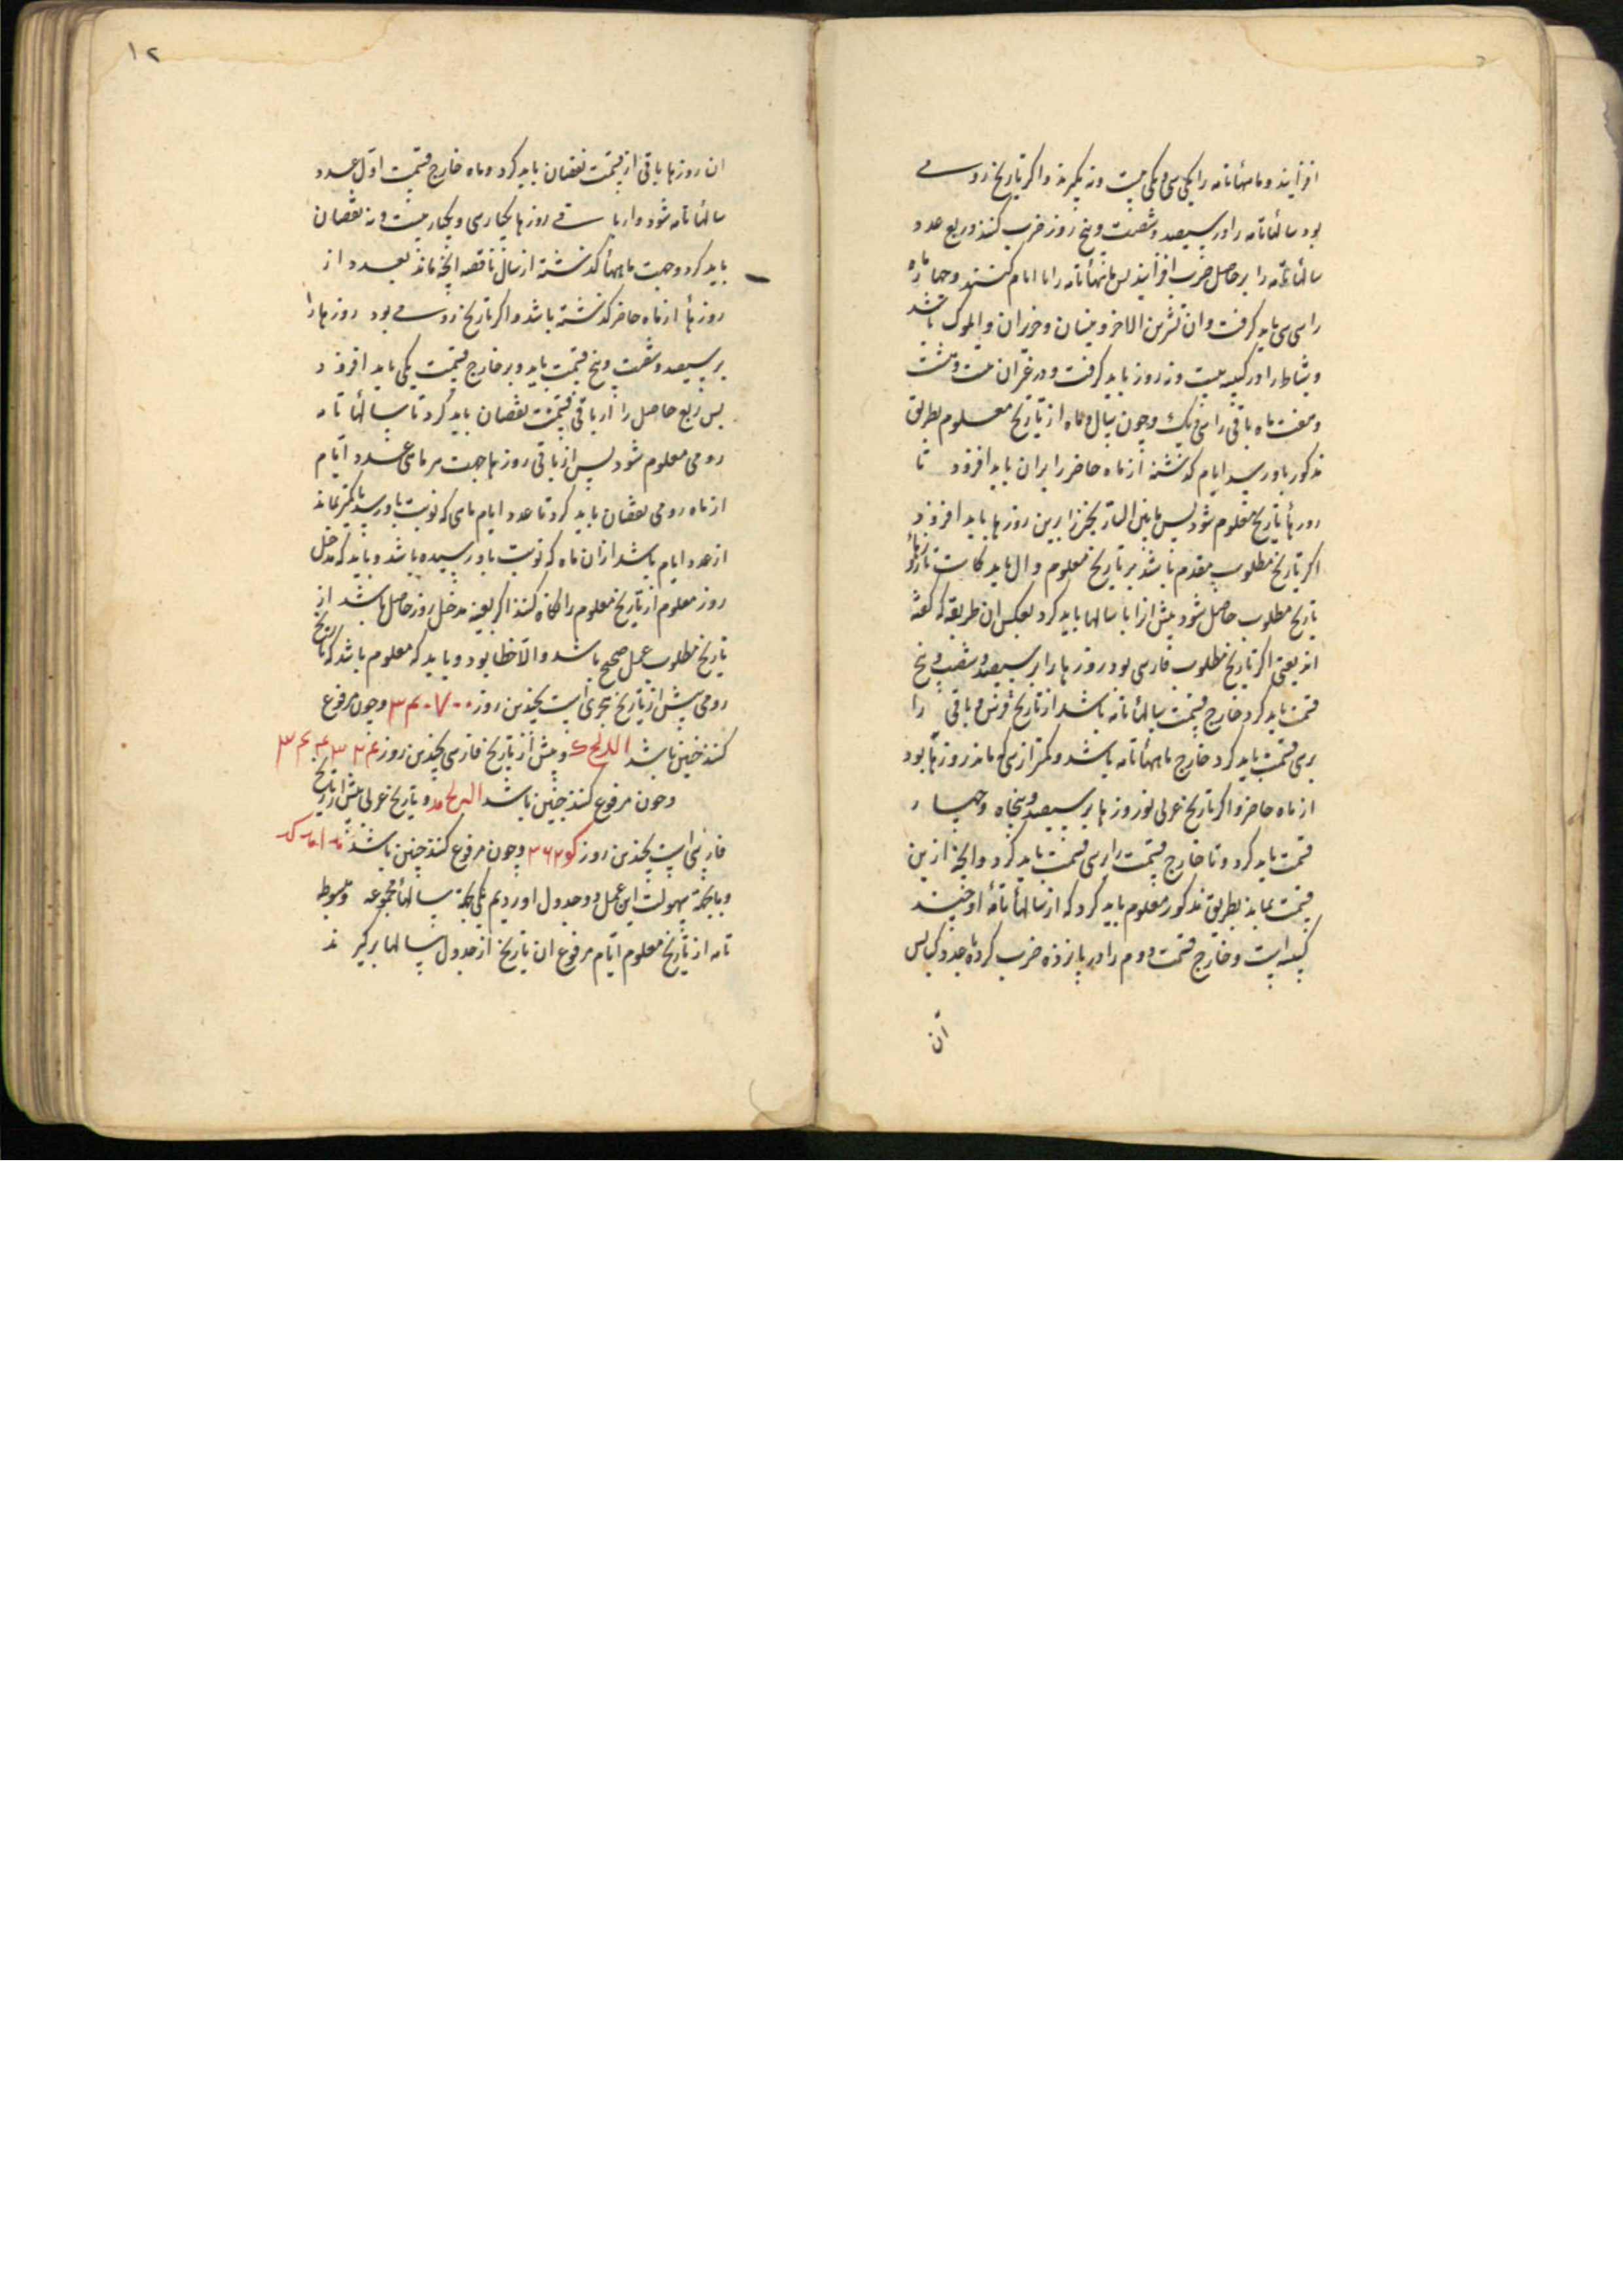 افزایند و ماههأ تامه را یکی سی و یکی بیست و نه بگیرند و اگر تاریخ رومی
بود سالهأ تامه را در سیصد و شصت و پنج روز ضرب کنند و ربع عدد
سالهأ تامه را بر حاصل ضرب افزایند پس ماههأ تامه را با ایام کنند و چهار ماه
را سی سی باید گرفت و ان تشرین الاخر و نیسان و حزیران و ایلول باشد
و شباط را در کبیسه بیست و نه روز باید گرفت و در غیر ان بیست و هشت
و هفت ماه باقی را سی و یک و چون سال و ماه از تاریخ معلوم بطریق
مذکور باورسد ایام گذشته از ماه حاضر را بران باید افزود تا
روزهأ تاریخ معلوم شود پس ما بین التاریخین را برین روزها باید افزود
اگر تاریخ مطلوب مقدم باشد بر تاریخ معلوم و الا باید کاست تا روزهأ
تاریخ مطلوب حاصل شود پیش ازا با سالها باید کرد بعکس ان طریقه که گفته
اند یعنی اگر تاریخ مطلوب فارسی بود روزها را بر سیصد و شصت و پنج
قسمت باید کرد خارج قسمت سالهأ تامه باشد از تاریخ فرس و باقی را
بر سی قسمت باید کرد خارج ماههأ تامه باشد و کمتر از سی که ماند روزها بود
از ماه حاضر و اگر تاریخ عربی بود روزها بر سیصد و پنجاه و چهار
قسمت باید کرد و تا خارج قسمت را بر سی قسمت باید کرد و انچه از ین
قسمت بماند بطریق مذکور معلوم باید کرد که از سالهأ تامهٔ او چند
کبیسه است و خارج قسمت دوم را در یازده ضرب کرد تا عدد کبایس
ان
۱۲
ان روزها باقی از قسمت نقصان باید کرد و ماه خارج قسمت اول عدد
سالهأ تامه شود و از باقی روزها یکبار سی و یکبار بیست و نه نقصان
باید کرد و جهت ماههأ گذشته از سال ناقصه انچه ماند بعدد از
روزهأ از ماه حاضر گذشته باشد و اگر تاریخ رومی بود روزها را
بر سیصد و شصت و پنج قسمت باید و بر خارج قسمت یکی باید افزود
پس ربع حاصل را از باقی قسمت نقصان باید کرد تا سالهأ تامه
رومی معلوم شود پس از باقی روزها جهت هر ماهی عدد ایام
از ماه رومی نقصان باید کرد تا عدد ایام ماهی که نوبت باورسد یا کمتر بماند
از عدد ایام باشد از ان ماه که نوبت باو رسیده باشد و باید که مدخل
روز معلوم از تاریخ معلوم را نگاه کنند اگر بعینه مدخل روز حاصل باشد از
تاریخ مطلوب عمل صحیح باشد و الا خطا بود و باید که معلوم باشد که تاریخ
رومی پیش از تاریخ هجری است بچندین روز ۳۴۰۷۰۰ و چون مرفوع
کنند چنین باشد و پیش از تاریخ فارسی بچندین روز ۳۴۴۳۲۴
و چون مرفوع کنند چنین باشد و تاریخ عربی پیش از تاریخ
فارسی است بچندین روز ۳۶۲۴ و چون مرفوع کنند چنین باشد
و با بجهة سهولت این عمل دو جدول اوردیم یکی بجهة سالهأ مجموعه و مبسوطه
تامه از تاریخ معلوم ایام مرفوع ان تاریخ از جدول سالها برگیرند